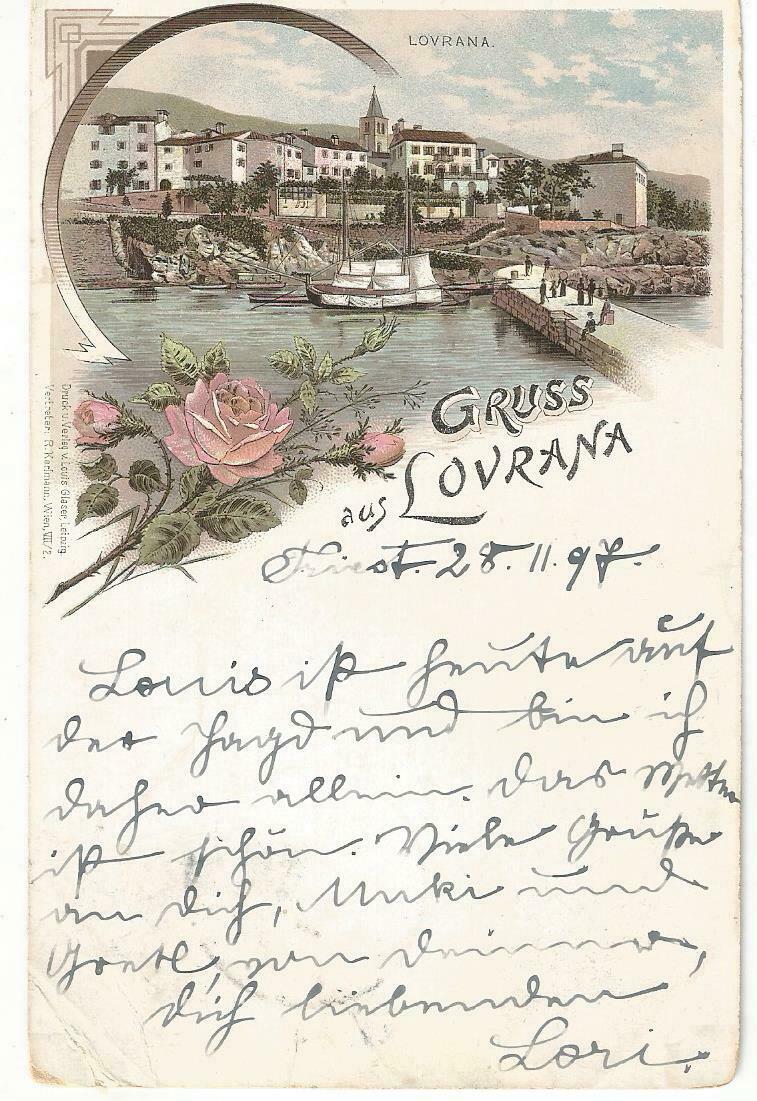 LOVRANA.
GRUSS
aus LOVRANA
Druck u. Verlag v. Louis Glaser, Leipzig.
Vertreter: R. Karlmann, Wien, VII/2.
Triest. 28. 11. 97.
Louis ist heute auf
der Jagd und bin ich
daher allein. Das Wetter
ist schön. Viele Grüße
an dich, Muki und
Gretl, von deiner,
dich liebenden
Lori.